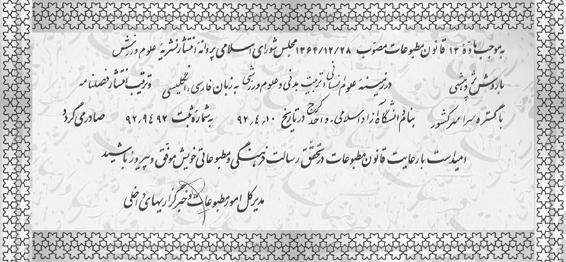 به موجب ماده ۱۳ قانون مطبوعات مصوب ۱۳۶۴/۱۲/۲۸ مجلس شورای اسلامی پروانه انتشار نشریه علوم ورزش
با روش پژوهشی در زمینه علوم انسانی تربیت بدنی و علوم ورزشی به زبان فارسی، انگلیسی و ترتیب انتشار فصلنامه
با گستره سراسر کشور بنام دانشگاه آزاد اسلامی، واحد کرج در تاریخ ۹۲,۴,۱۰ به شماره ثبت ۹۲,۹۴۹۲ صادر می گردد
امید است با رعایت قانون مطبوعات در تحقق رسالت فرهنگی و مطبوعاتی خویش موفق و پیروز باشید
مدیر کل امور مطبوعات و خبرگزاریهای داخلی